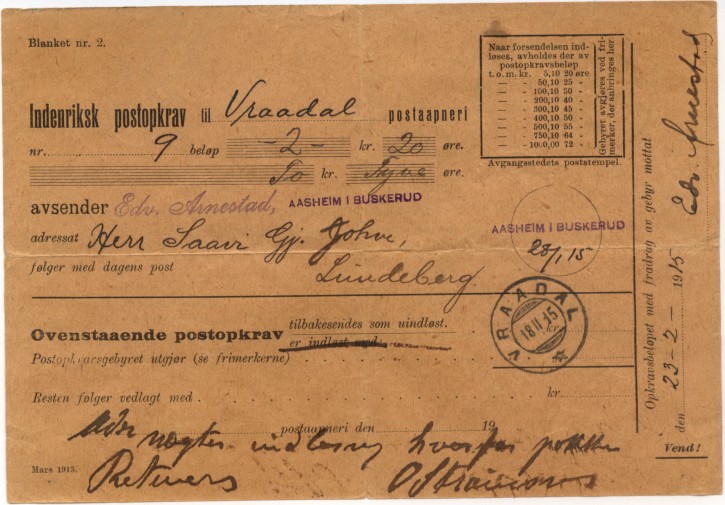 Blanket nr. 2.
Indenriksk postopkrav til Vraadal postaapneri
nr. 9 beløp -2- kr. 20 øre.
To kr. Tyve øre.
avsender Edv. Arnestad, AASHEIM I BUSKERUD
adressat Herr Saavi Gj.
følger med dagens post Lindeberg
Ovenstaaende postopkrav tilbakesendes som uindløst.
er indløst med
Postopkravsgebyret utgjør (se frimerkerne) kr.
Resten følger vedlagt med kr.
postaapneri den 19
nægter indløsning hvorfor pakken
Retuers
Mars 1913.
Vend!
Naar forsendelsen ind-
løses, avholdes der av
postopkravsbeløp
t. o. m. kr. 5,10 20 øre
— — 50,10 25 —
— — 100,10 30 —
— — 200,10 40 —
— — 300,10 45 —
— — 400,10 50 —
— — 500,10 55 —
— — 750,10 64 —
— — 1000,00 72 —
Gebyret avgjøres ved fri-
merker, der anbringes her
Avgangsstedets poststempel.
AASHEIM I BUSKERUD
28/1 15
VRAADAL
18 II 15
Opkravsbeløpet med fradrag av gebyr mottat
den 23-2- 1915 Edv. Arnestad